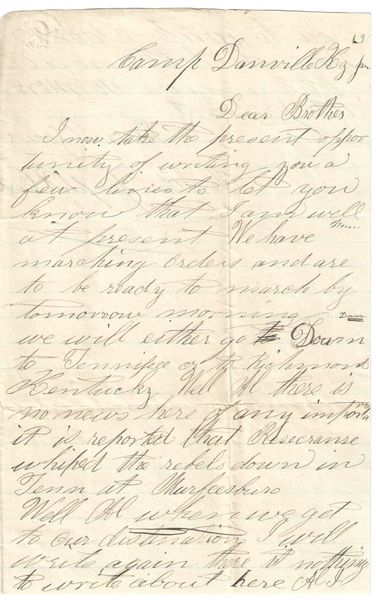 63
Camp Danville Ky Jan
Dear Brother
I now take the present oppor
tunity of writing you a
few lines to let you
know that I am well
at present We have
marching orders and are
to be ready to march by
tomorrow morning
we will either go to Down
to Tennissee or to Richmond
Kentucky Well Al there is
no news here of any import
it is reported that Rosecranse
whiped the rebels down in
Tenn at Murfeesburo
Well Al when we get
to our distination I will
write again there is nothing
to write about here Al I